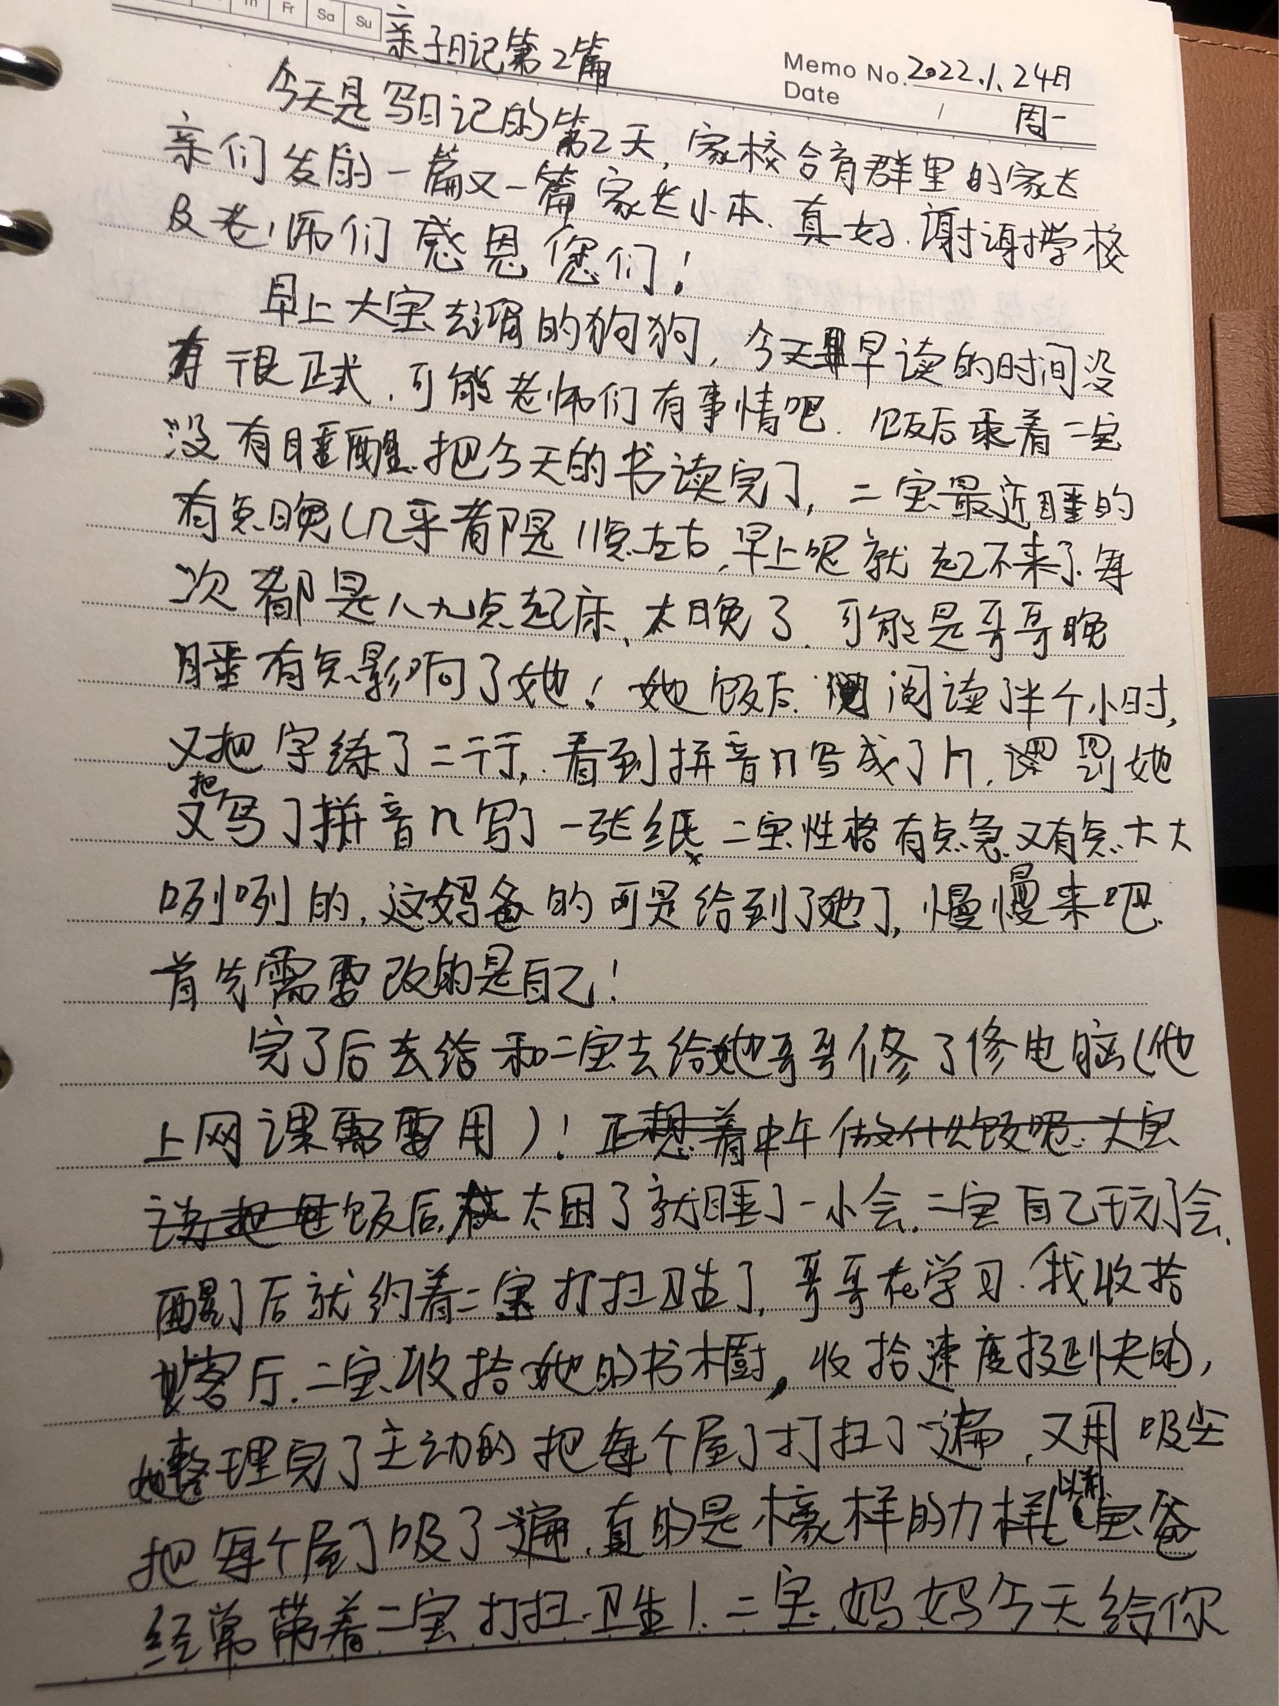 Th Fr Sa Su
亲子日记第2篇
Memo No. 2022.1.24日
Date 周一
今天是写日记的第2天,家校合育群里的家长
亲们发的一篇又一篇家长小本、真好.谢谢学校
及老师们感恩您们!
早上大宝去溜的狗狗,今天早读的时间没
有很正式.可能老师们有事情吧.饭后乘着二宝
没有睡醒.把今天的书读完了,二宝最近睡的
有点晚(几乎都是11点左右,早上呢就起不来了.每
次都是八九点起床、太晚了.可能是哥哥晚
睡有点影响了她!她饭后阅读了半个小时,
又把字练了二行,看到拼音n写成了h,罚她
又把写了拼音n写了一张纸、二宝性格有点急又有点大大
咧咧的,这妈爸的可是给到了她了,慢慢来吧.
首先需要改的是自己!
完了后去给和二宝去给她哥哥修了修电脑(他
上网课需要用)!正想着中午做什么饭呢.大宝
说把 饭后,太困了就睡了一小会.二宝自己玩了会.
醒了后就约着二宝打扫卫生了,哥哥在学习.我收拾
客厅.二宝收拾她的书橱,收拾速度挺快的,
她整理完了主动的把每个屋了打扫了一遍,又用吸尘
把每个屋了吸了一遍.真的是像模样的力样(以前宝爸
经常带着二宝打扫卫生).二宝、妈妈今天给你